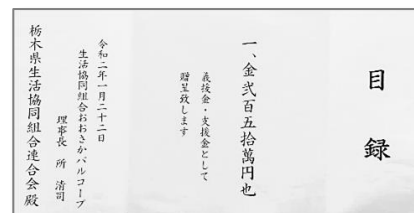 目録
一、金弐百五拾萬円也
義援金・支援金として
贈呈致します
令和二年一月二十二日
生活協同組合おおさかパルコープ
理事長 所 清司
栃木県生活協同組合連合会 殿